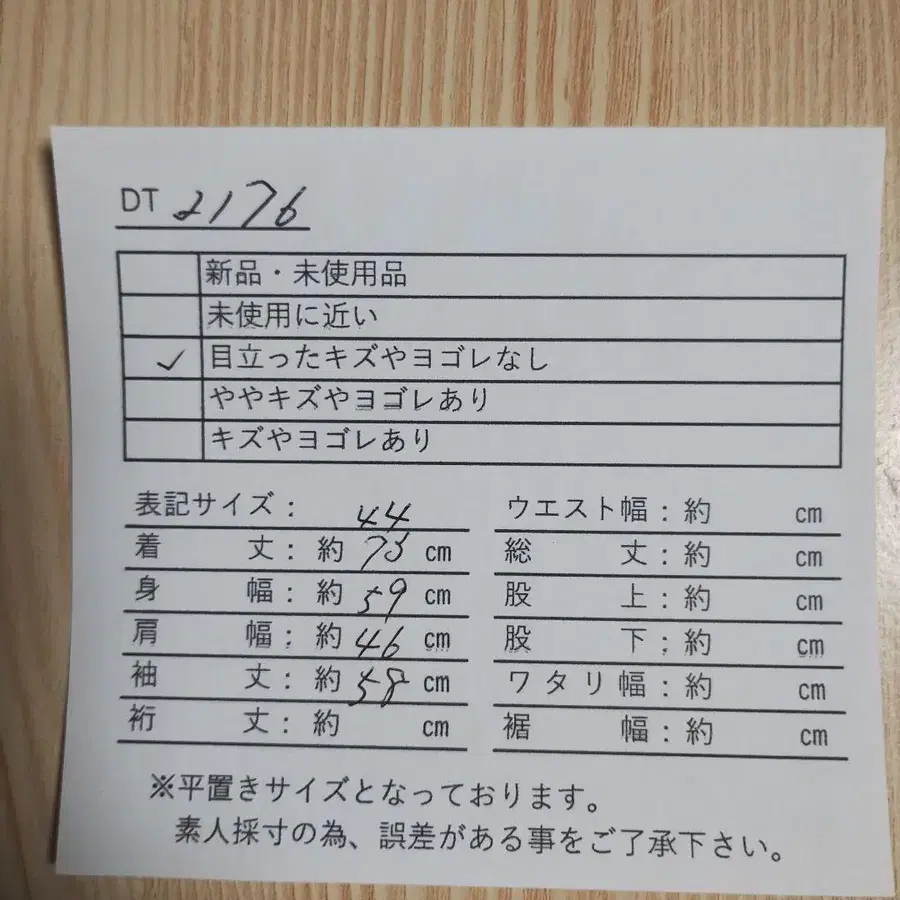 DT 2176
新品・未使用品
未使用に近い
✓ 目立ったキズやヨゴレなし
ややキズやヨゴレあり
キズやヨゴレあり
表記サイズ: 44
着丈: 約 73 cm
身幅: 約 59 cm
肩幅: 約 46 cm
袖丈: 約 58 cm
裄丈: 約 cm
ウエスト幅: 約 cm
総丈: 約 cm
股上: 約 cm
股下: 約 cm
ワタリ幅: 約 cm
裾幅: 約 cm
※平置きサイズとなっております。
素人採寸の為、誤差がある事をご了承下さい。